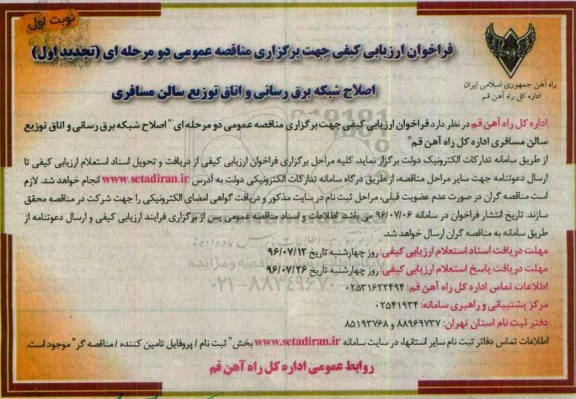 نوبت اول
فراخوان ارزیابی کیفی جهت برگزاری مناقصه عمومی دو مرحله ای (تجدید اول)
اصلاح شبکه برق رسانی و اتاق توزیع سالن مسافری
راه آهن جمهوری اسلامی ایران
اداره کل راه آهن قم
اداره کل راه آهن قم در نظر دارد فراخوان ارزیابی کیفی جهت برگزاری مناقصه عمومی دو مرحله ای "اصلاح شبکه برق رسانی و اتاق توزیع
سالن مسافری اداره کل راه آهن قم"
از طریق سامانه تدارکات الکترونیک دولت برگزار نماید. کلیه مراحل برگزاری فراخوان ارزیابی کیفی از دریافت و تحویل اسناد استعلام ارزیابی کیفی تا
ارسال دعوتنامه جهت سایر مراحل مناقصه، از طریق درگاه سامانه تدارکات الکترونیکی دولت به آدرس www.setadiran.ir انجام خواهد شد. لازم
است مناقصه گران در صورت عدم عضویت قبلی، مراحل ثبت نام در سایت مذکور و دریافت گواهی امضای الکترونیکی را جهت شرکت در مناقصه محقق
سازند. تاریخ انتشار فراخوان در سامانه ۹۶/۰۷/۰۶ می باشد. اطلاعات و اسناد مناقصه عمومی پس از برگزاری فرایند ارزیابی کیفی و ارسال دعوتنامه از
طریق سامانه به مناقصه گران ارسال خواهد شد.
مهلت دریافت اسناد استعلام ارزیابی کیفی: روز چهارشنبه تاریخ ۹۶/۰۷/۱۲
مهلت دریافت پاسخ استعلام ارزیابی کیفی: روز چهارشنبه تاریخ ۹۶/۰۷/۲۶
۰۲۱-۸۸۳۴۹۶۷۰
اطلاعات تماس اداره کل راه آهن قم: ۰۲۵۳۱۶۲۲۴۹۴
مرکز پشتیبانی و راهبری سامانه: ۰۲۵۴۱۹۳۴
دفتر ثبت نام استان تهران: ۸۸۹۶۹۷۳۷ و ۸۵۱۹۳۷۶۸
اطلاعات تماس دفاتر ثبت نام سایر استانها، در سایت سامانه www.setadiran.ir بخش" ثبت نام / پروفایل تامین کننده / مناقصه گر" موجود است.
روابط عمومی اداره کل راه آهن قم